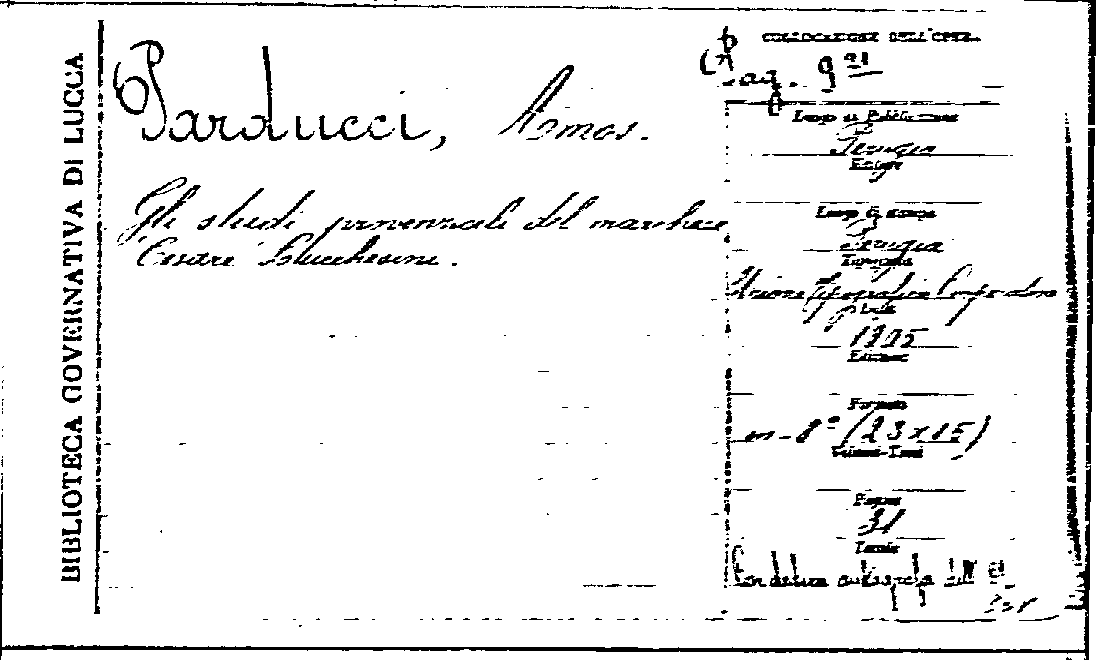 BIBLIOTECA GOVERNATIVA DI LUCCA
Parducci, Amos.
Gli studi provenzali del marchese
Cesare Lucchesini.
COLLOCAZIONE DELL'OPERA
Luogo di Pubblicazione
Perugia
Editore
Luogo di stampa
Perugia
Tipografia
Unione Tipografica Cooperativa
Data
Edizione
Formato
in-8º (23x15)
Volumi-Tomi
Pagine
31
con dedica autografa dell'